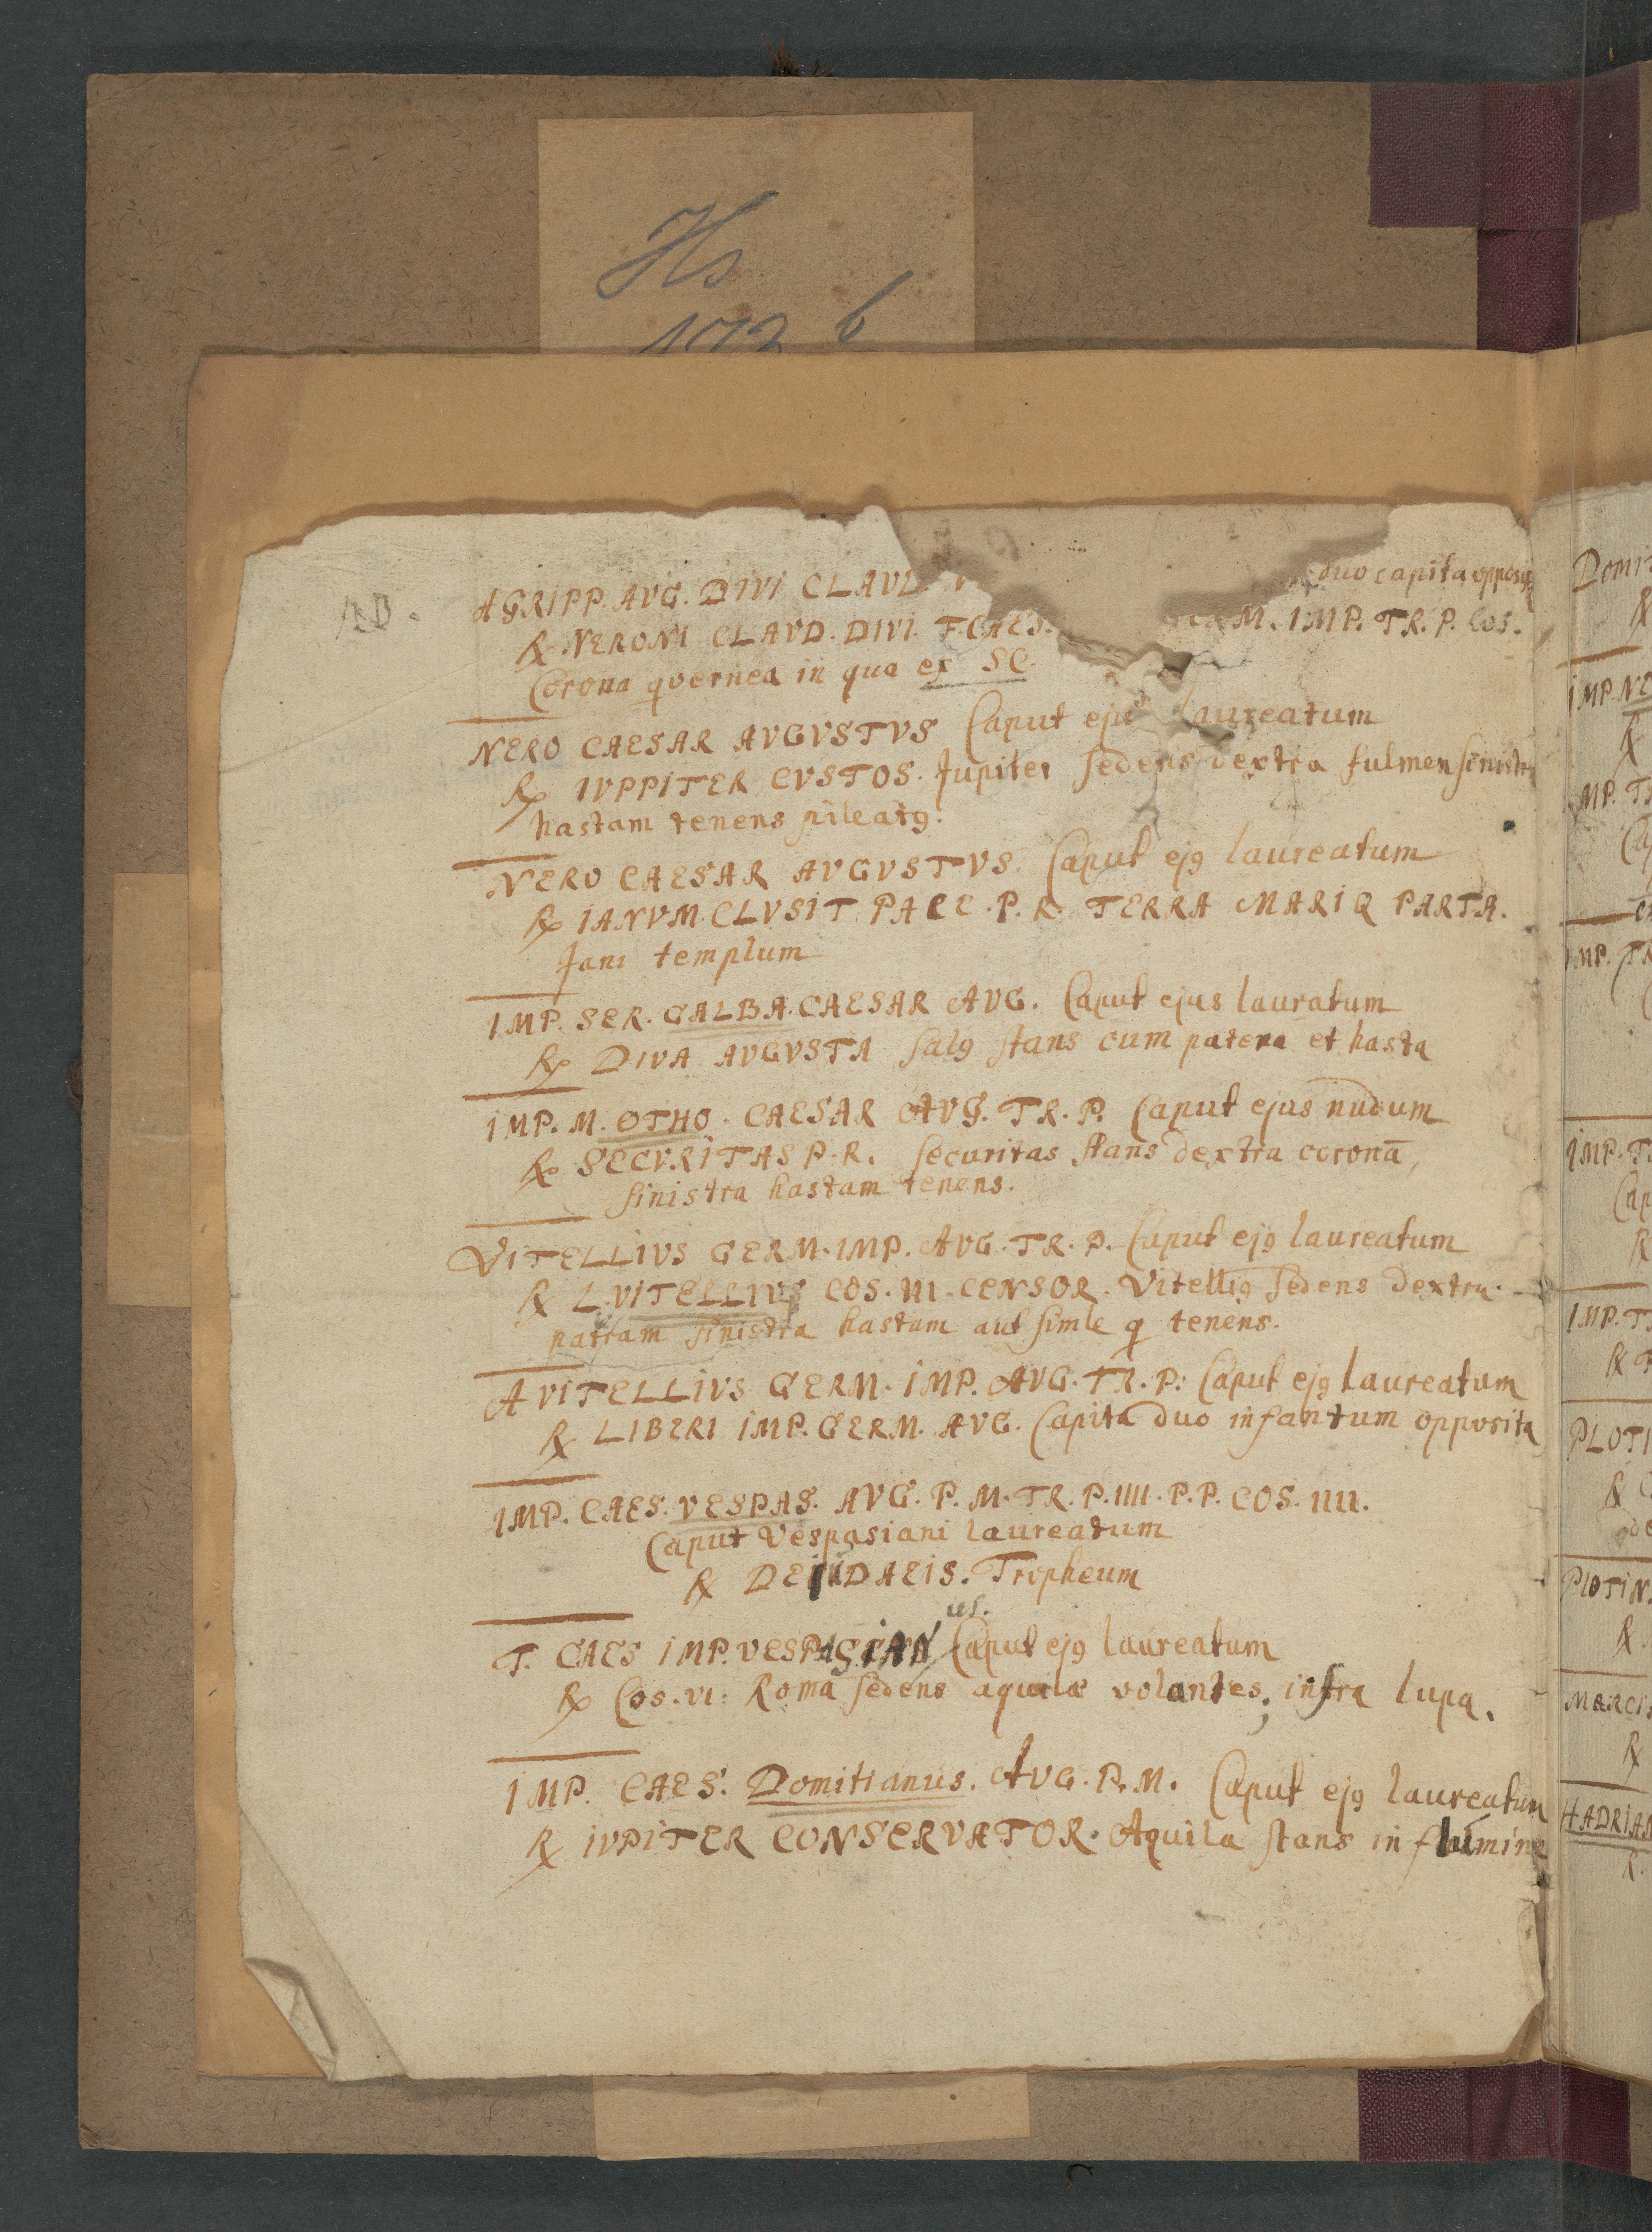 Hs
172 b
AGRIPP. AVG. DIVI CLAVD. duo capita opposi
℞ NERONI CLAVD. DIVI. F. CAES. M. IMP. TR. P. COS.
Corona qvernea in qua ex SC.
NERO CAESAR AVGVSTVS Caput ejus laureatum
℞ IVPPITER CVSTOS. Jupiter sedens dextra fulmen sinistra
hastam tenens pileatꝰ.
NERO CAESAR AVGVSTVS. Caput ejꝰ laureatum
℞ IANVM. CLVSIT PACE. P. R. TERRA MARIQ PARTA.
Jani templum
IMP. SER. GALBA. CAESAR AVG. Caput ejus lauratum
℞ DIVA AVGVSTA Salꝰ stans cum patera et hasta
IMP. M. OTHO. CAESAR AVG. TR. P. Caput ejus nudum
℞ SECVRITAS P. R. Securitas stans dextra coronā,
sinistra hastam tenens.
VITELLIVS GERM. IMP. AVG. TR. P. Caput ejꝰ laureatum
℞ L. VITELLIVS COS. III. CENSOR. Vitelliꝰ sedens dextra
sinistra hastam aut simle q tenens.
A VITELLIVS GERM. IMP. AVG. TR. P. Caput ejꝰ laureatum
℞ LIBERI IMP. GERM. AVG. Capita duo infantum opposita
IMP. CAES. VESPAS. AVG. P. M. TR. P. IIII. P. P. COS. IIII.
Caput Vespasiani laureatum
℞ DE IVDAEIS. Tropheum
T. CAES IMP. VESPASIANus. Caput ejꝰ laureatum
℞ Cos. VI: Roma sedens aquilæ volantes; infra lupa.
IMP. CAES. Domitianus. AVG. P. M. Caput ejꝰ laureatum
℞ IVPITER CONSERVATOR. Aquila stans in fulmine
Domit
℞
IMP. NE
℞
MP. TR
IMP. TR
IMP. T
Cap
℞
IMP. T
℞
PLOTI
℞
de
PLOTIN
℞
MARCI
℞
HADRIAN
℞.